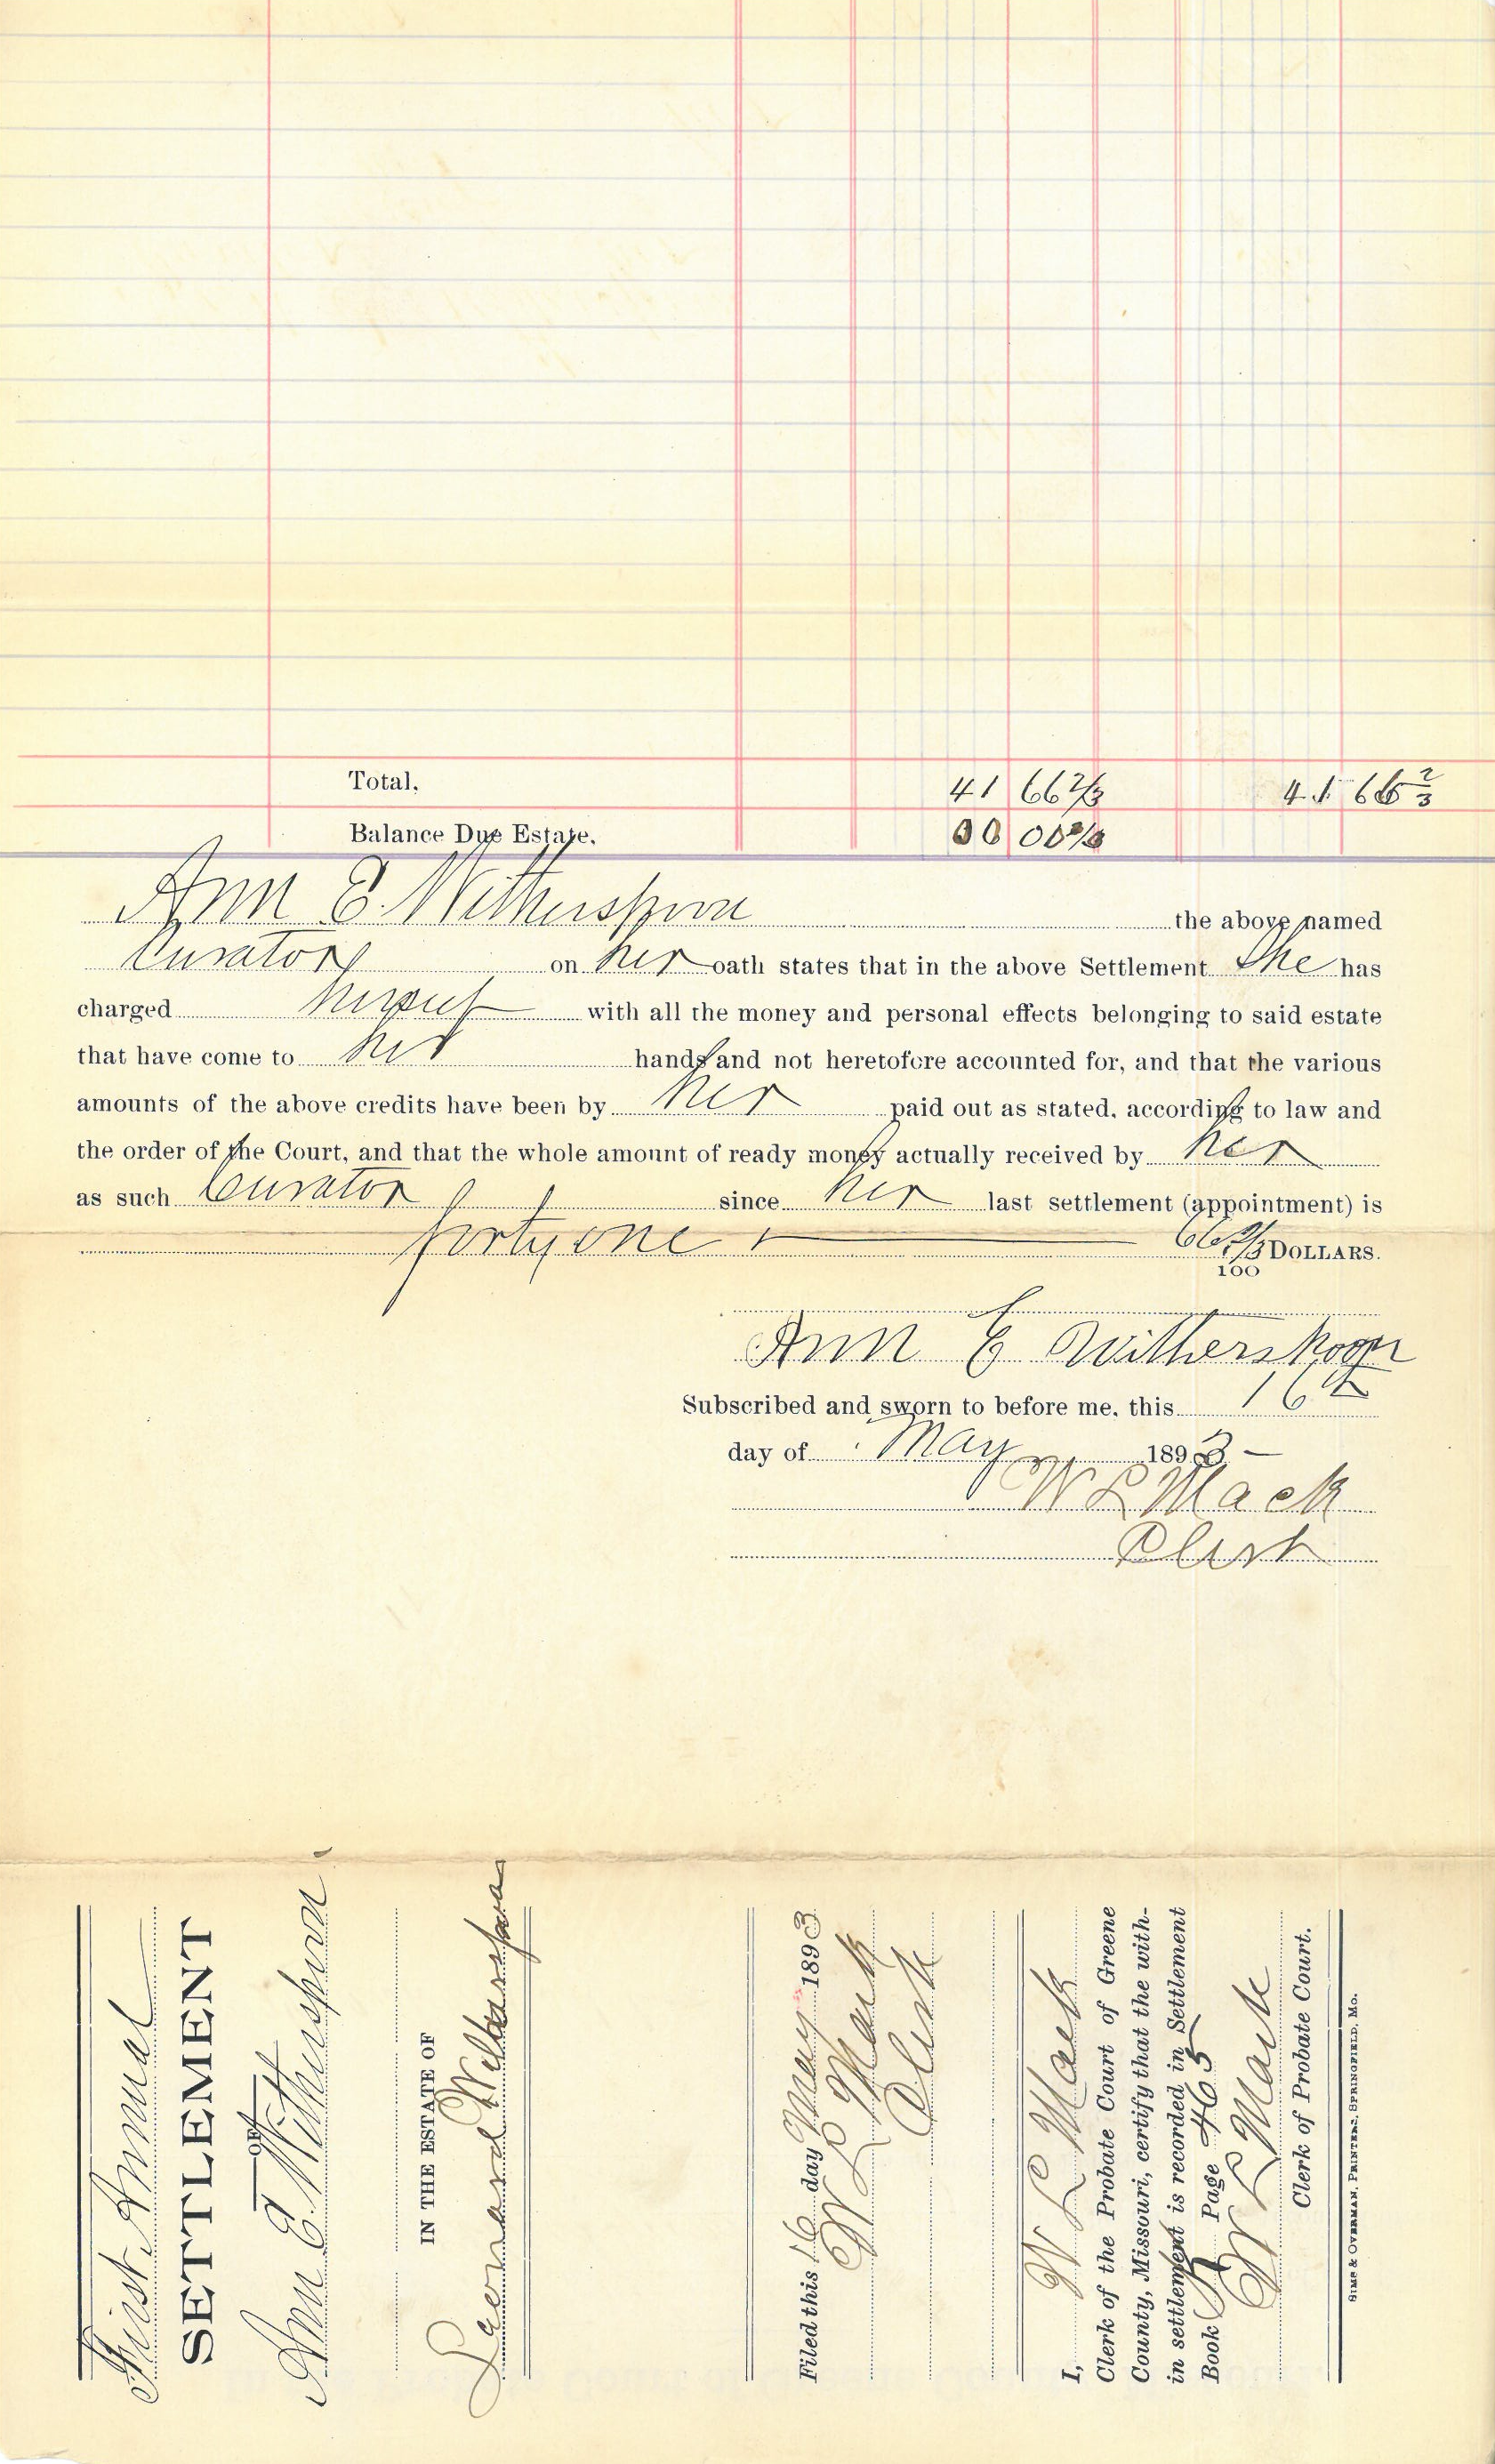 Total. 41 66 2/3 41 66 2/3
Balance Due Estate. 00 00 0/0
Ann E. Witherspoon the above named
Curator on her oath states that in the above Settlement She has
charged herself with all the money and personal effects belonging to said estate
that have come to her hands and not heretofore accounted for, and that the various
amounts of the above credits have been by her paid out as stated, according to law and
the order of the Court, and that the whole amount of ready money actually received by her
as such Curator since her last settlement (appointment) is
forty one + 66 2/3/100 DOLLARS.
Ann E Witherspoon
Subscribed and sworn to before me, this 16th
day of May 1893
W L Mack
Clerk
First Annual
SETTLEMENT
OF
Ann E. Witherspoon
IN THE ESTATE OF
Leonard Witherspoon
Filed this 16 day May 1893
W L Mack
Clerk
I, W L Mack
Clerk of the Probate Court of Greene
County, Missouri, certify that the with-
in settlement is recorded in Settlement
Book Page 465
W L Mack
Clerk of Probate Court.
SIMS & OVERMAN, PRINTERS, SPRINGFIELD, MO.